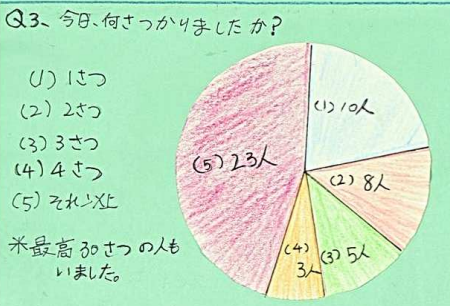 Q3、今日、何さつかりましたか?
(1) 1さつ
(2) 2さつ
(3) 3さつ
(4) 4さつ
(5) それ以上
米最高30さつの人も
いました。
(1)10人
(2) 8人
(3)5人
(4)
3人
(5)23人